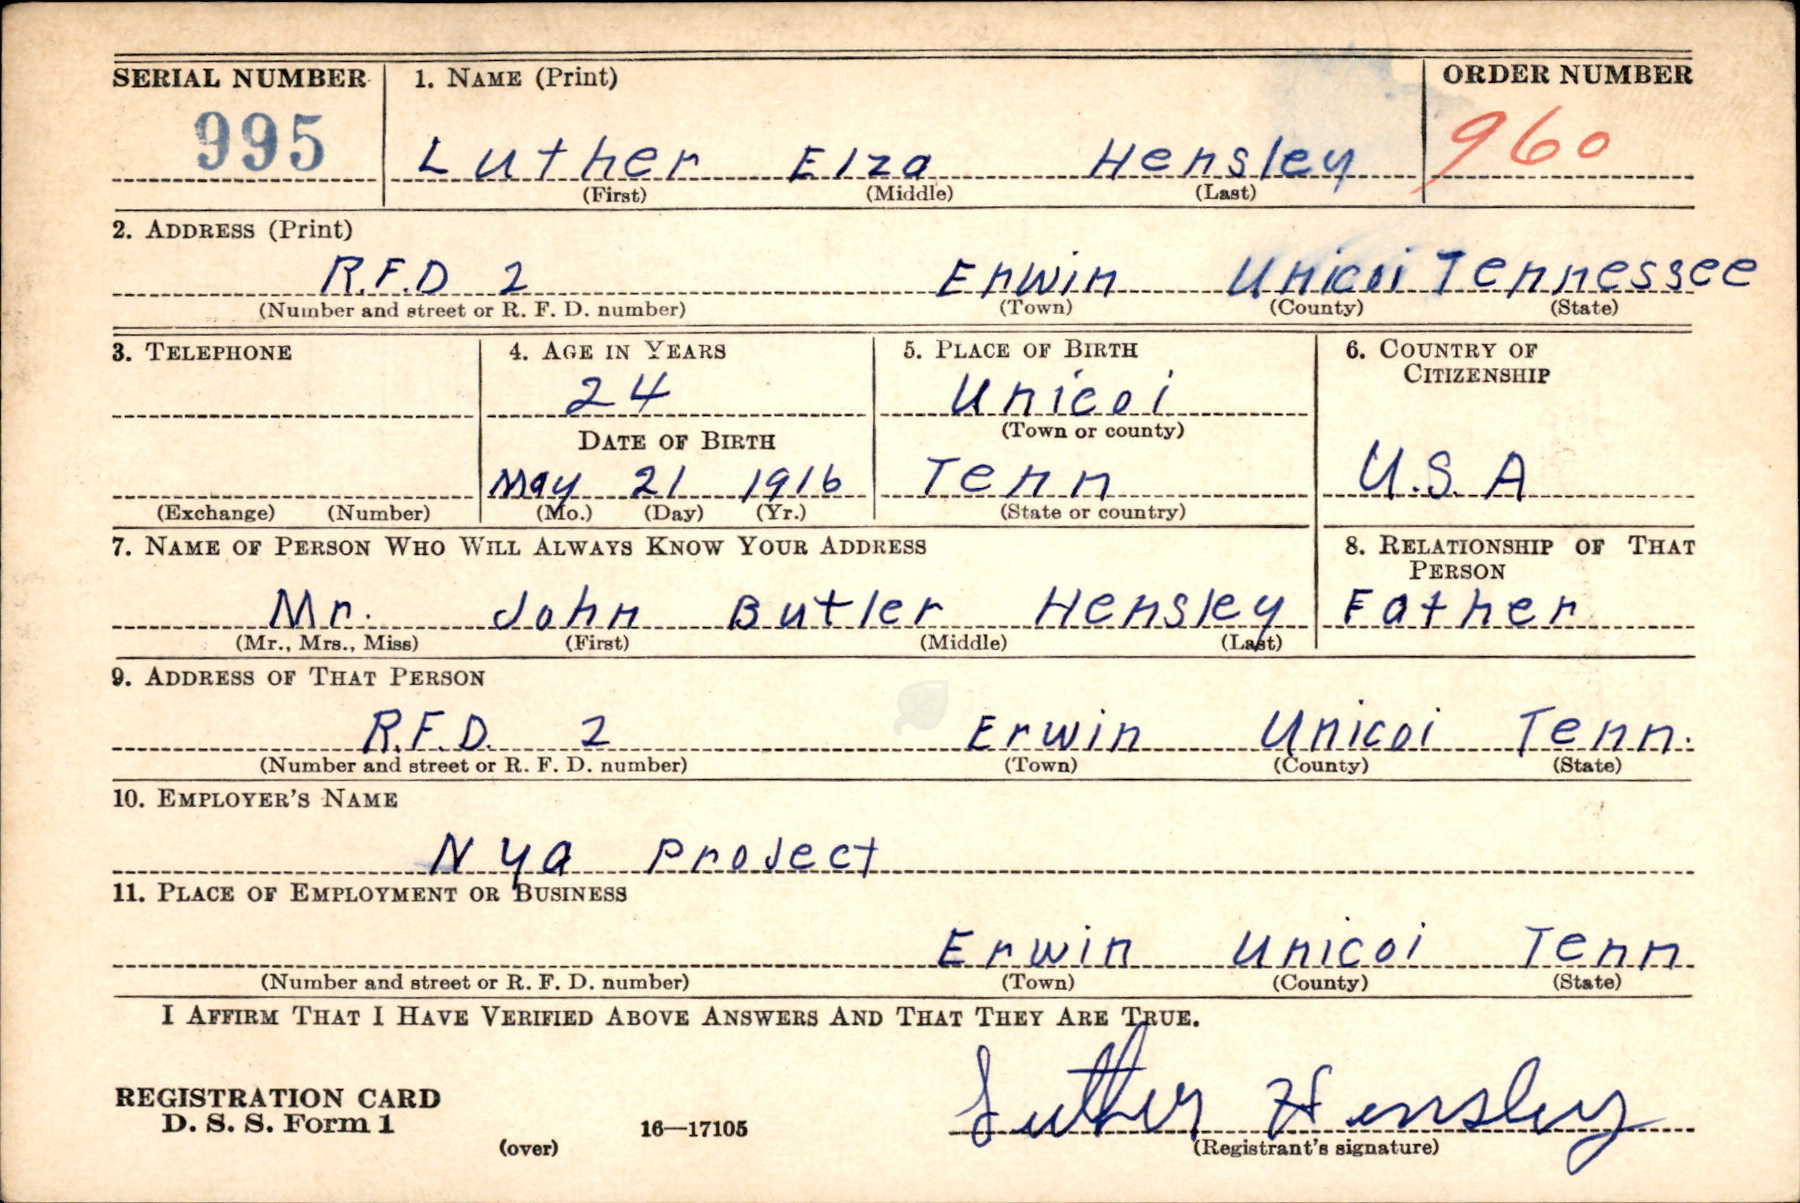 SERIAL NUMBER 1. NAME (Print) ORDER NUMBER
995 Luther Elza Hensley 960
(First) (Middle) (Last)
2. ADDRESS (Print)
R.F.D 2 Erwin Unicoi Tennessee
(Number and street or R. F. D. number) (Town) (County) (State)
3. TELEPHONE 4. AGE IN YEARS 5. PLACE OF BIRTH 6. COUNTRY OF
CITIZENSHIP
24 Unicoi
DATE OF BIRTH (Town or county)
May 21 1916 Tenn U.S. A
(Exchange) (Number) (Mo.) (Day) (Yr.) (State or country)
7. NAME OF PERSON WHO WILL ALWAYS KNOW YOUR ADDRESS 8. RELATIONSHIP OF THAT
PERSON
Mr. John Butler Hensley Father
(Mr., Mrs., Miss) (First) (Middle) (Last)
9. ADDRESS OF THAT PERSON
R.F.D. 2 Erwin Unicoi Tenn.
(Number and street or R. F. D. number) (Town) (County) (State)
10. EMPLOYER'S NAME
Nya Project
11. PLACE OF EMPLOYMENT OR BUSINESS
Erwin Unicoi Tenn
(Number and street or R. F. D. number) (Town) (County) (State)
I AFFIRM THAT I HAVE VERIFIED ABOVE ANSWERS AND THAT THEY ARE TRUE.
Luther Hensley
REGISTRATION CARD
D. S. S. Form 1
(over) 16—17105 (Registrant's signature)